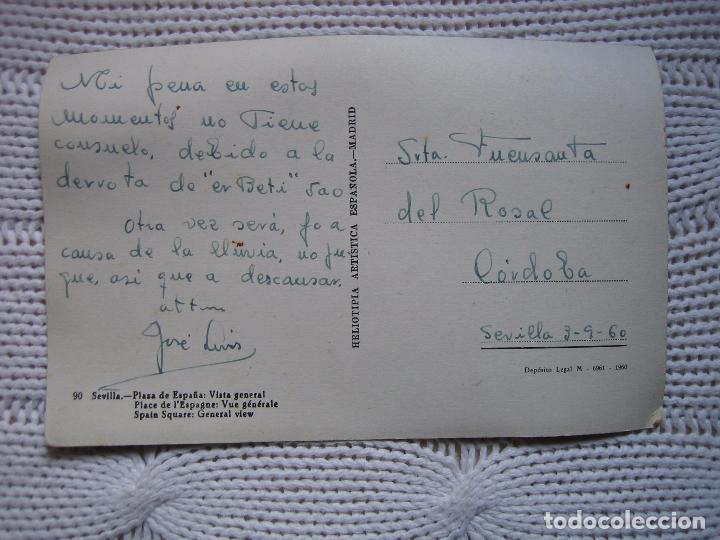 Mi pena en estos
momentos no Tiene
consuelo, debido a la
derrota de "er Beti"
Otra vez será,
causa de la lluvia, no
que, asi que a descansar.
José Luis
90 Sevilla.—Plaza de España: Vista general
Place de l'Espagne: Vue générale
Spain Square: General view
HELIOTIPIA ARTÍSTICA ESPAÑOLA.—MADRID
Srta. Fuensanta
del Rosal
Córdoba
Sevilla 3-9-60
Depósito Legal M - 6961 - 1960
todocoleccion